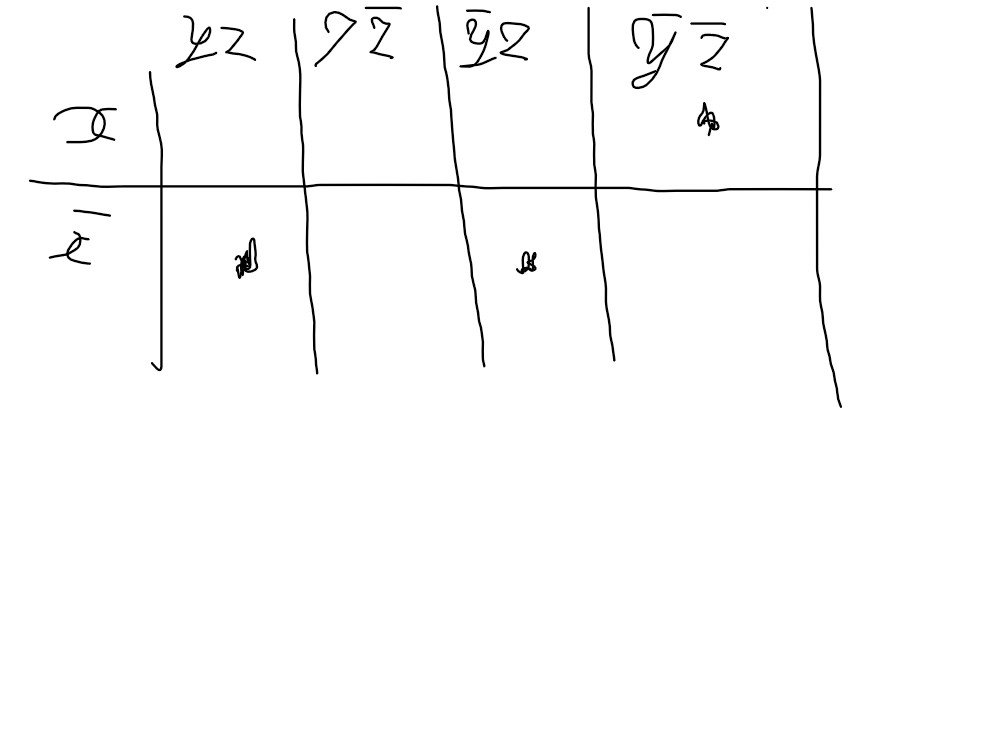 yz y z̅ y̅z y̅ z̅
x
x̅